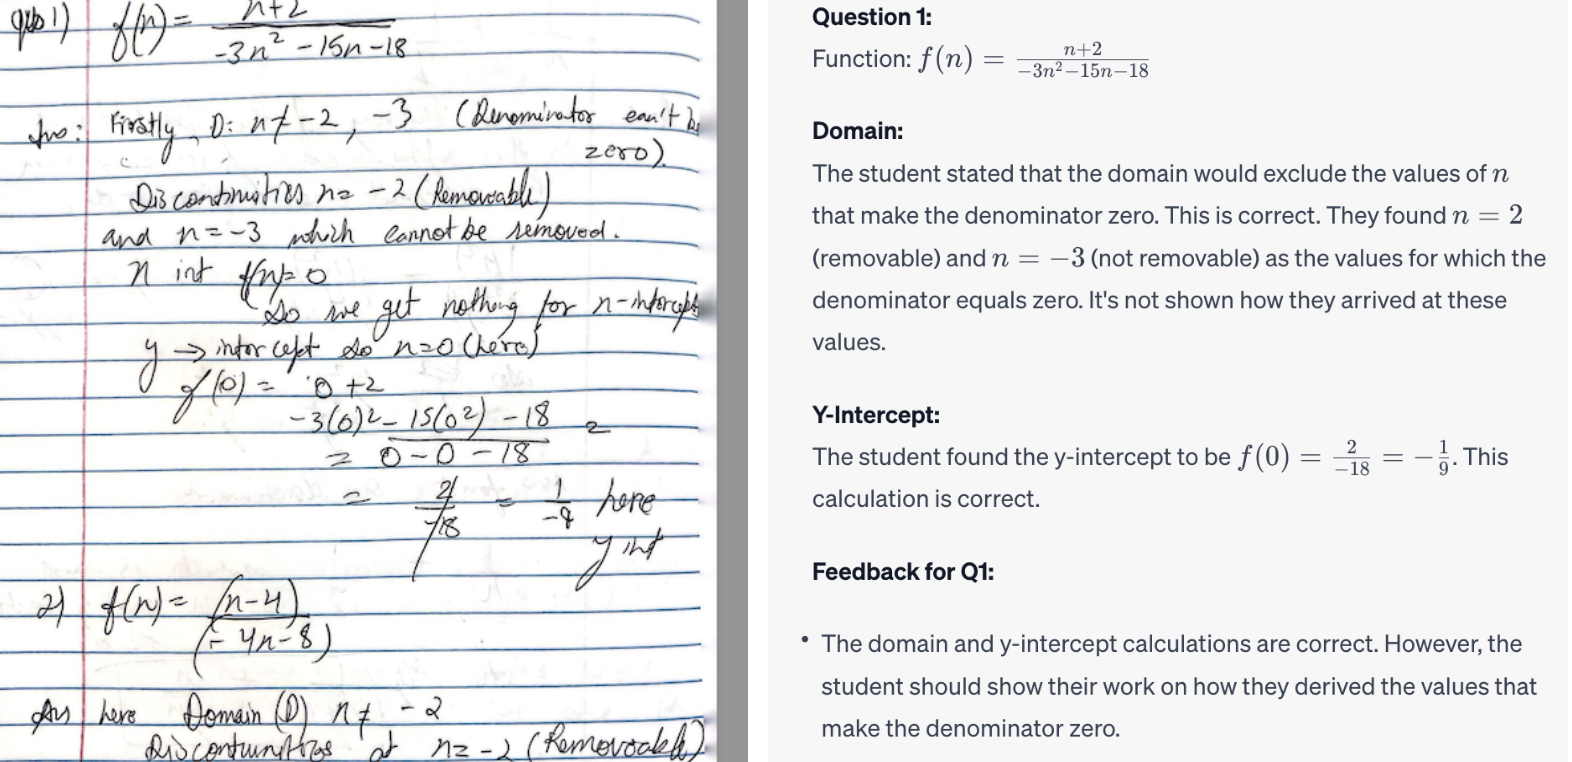 Qub 1) f(n) = n+2
-3n² - 15n - 18
Ans: Firstly, D: n ≠ -2, -3 (Denominator can't be
zero).
Discontinuities n = -2 (Removeable)
and n = -3 which cannot be removed.
n int f(n) = 0
So we get nothing for n-intercept
y → intercept so n=0 (here)
f(0) = 0 + 2
-3(0)² - 15(0²) - 18 =
= 0 - 0 - 18
= 2/-18 = 1/-9 here
y int
2) f(n) = (n-4)
(-4n-8)
Ans here Domain (D) n ≠ -2
Discontinuities at n = -2 (Removeable)
Question 1:
Function: f(n) = n+2/-3n²-15n-18
Domain:
The student stated that the domain would exclude the values of n
that make the denominator zero. This is correct. They found n = 2
(removable) and n = -3 (not removable) as the values for which the
denominator equals zero. It's not shown how they arrived at these
values.
Y-Intercept:
The student found the y-intercept to be f(0) = 2/-18 = -1/9. This
calculation is correct.
Feedback for Q1:
• The domain and y-intercept calculations are correct. However, the
student should show their work on how they derived the values that
make the denominator zero.